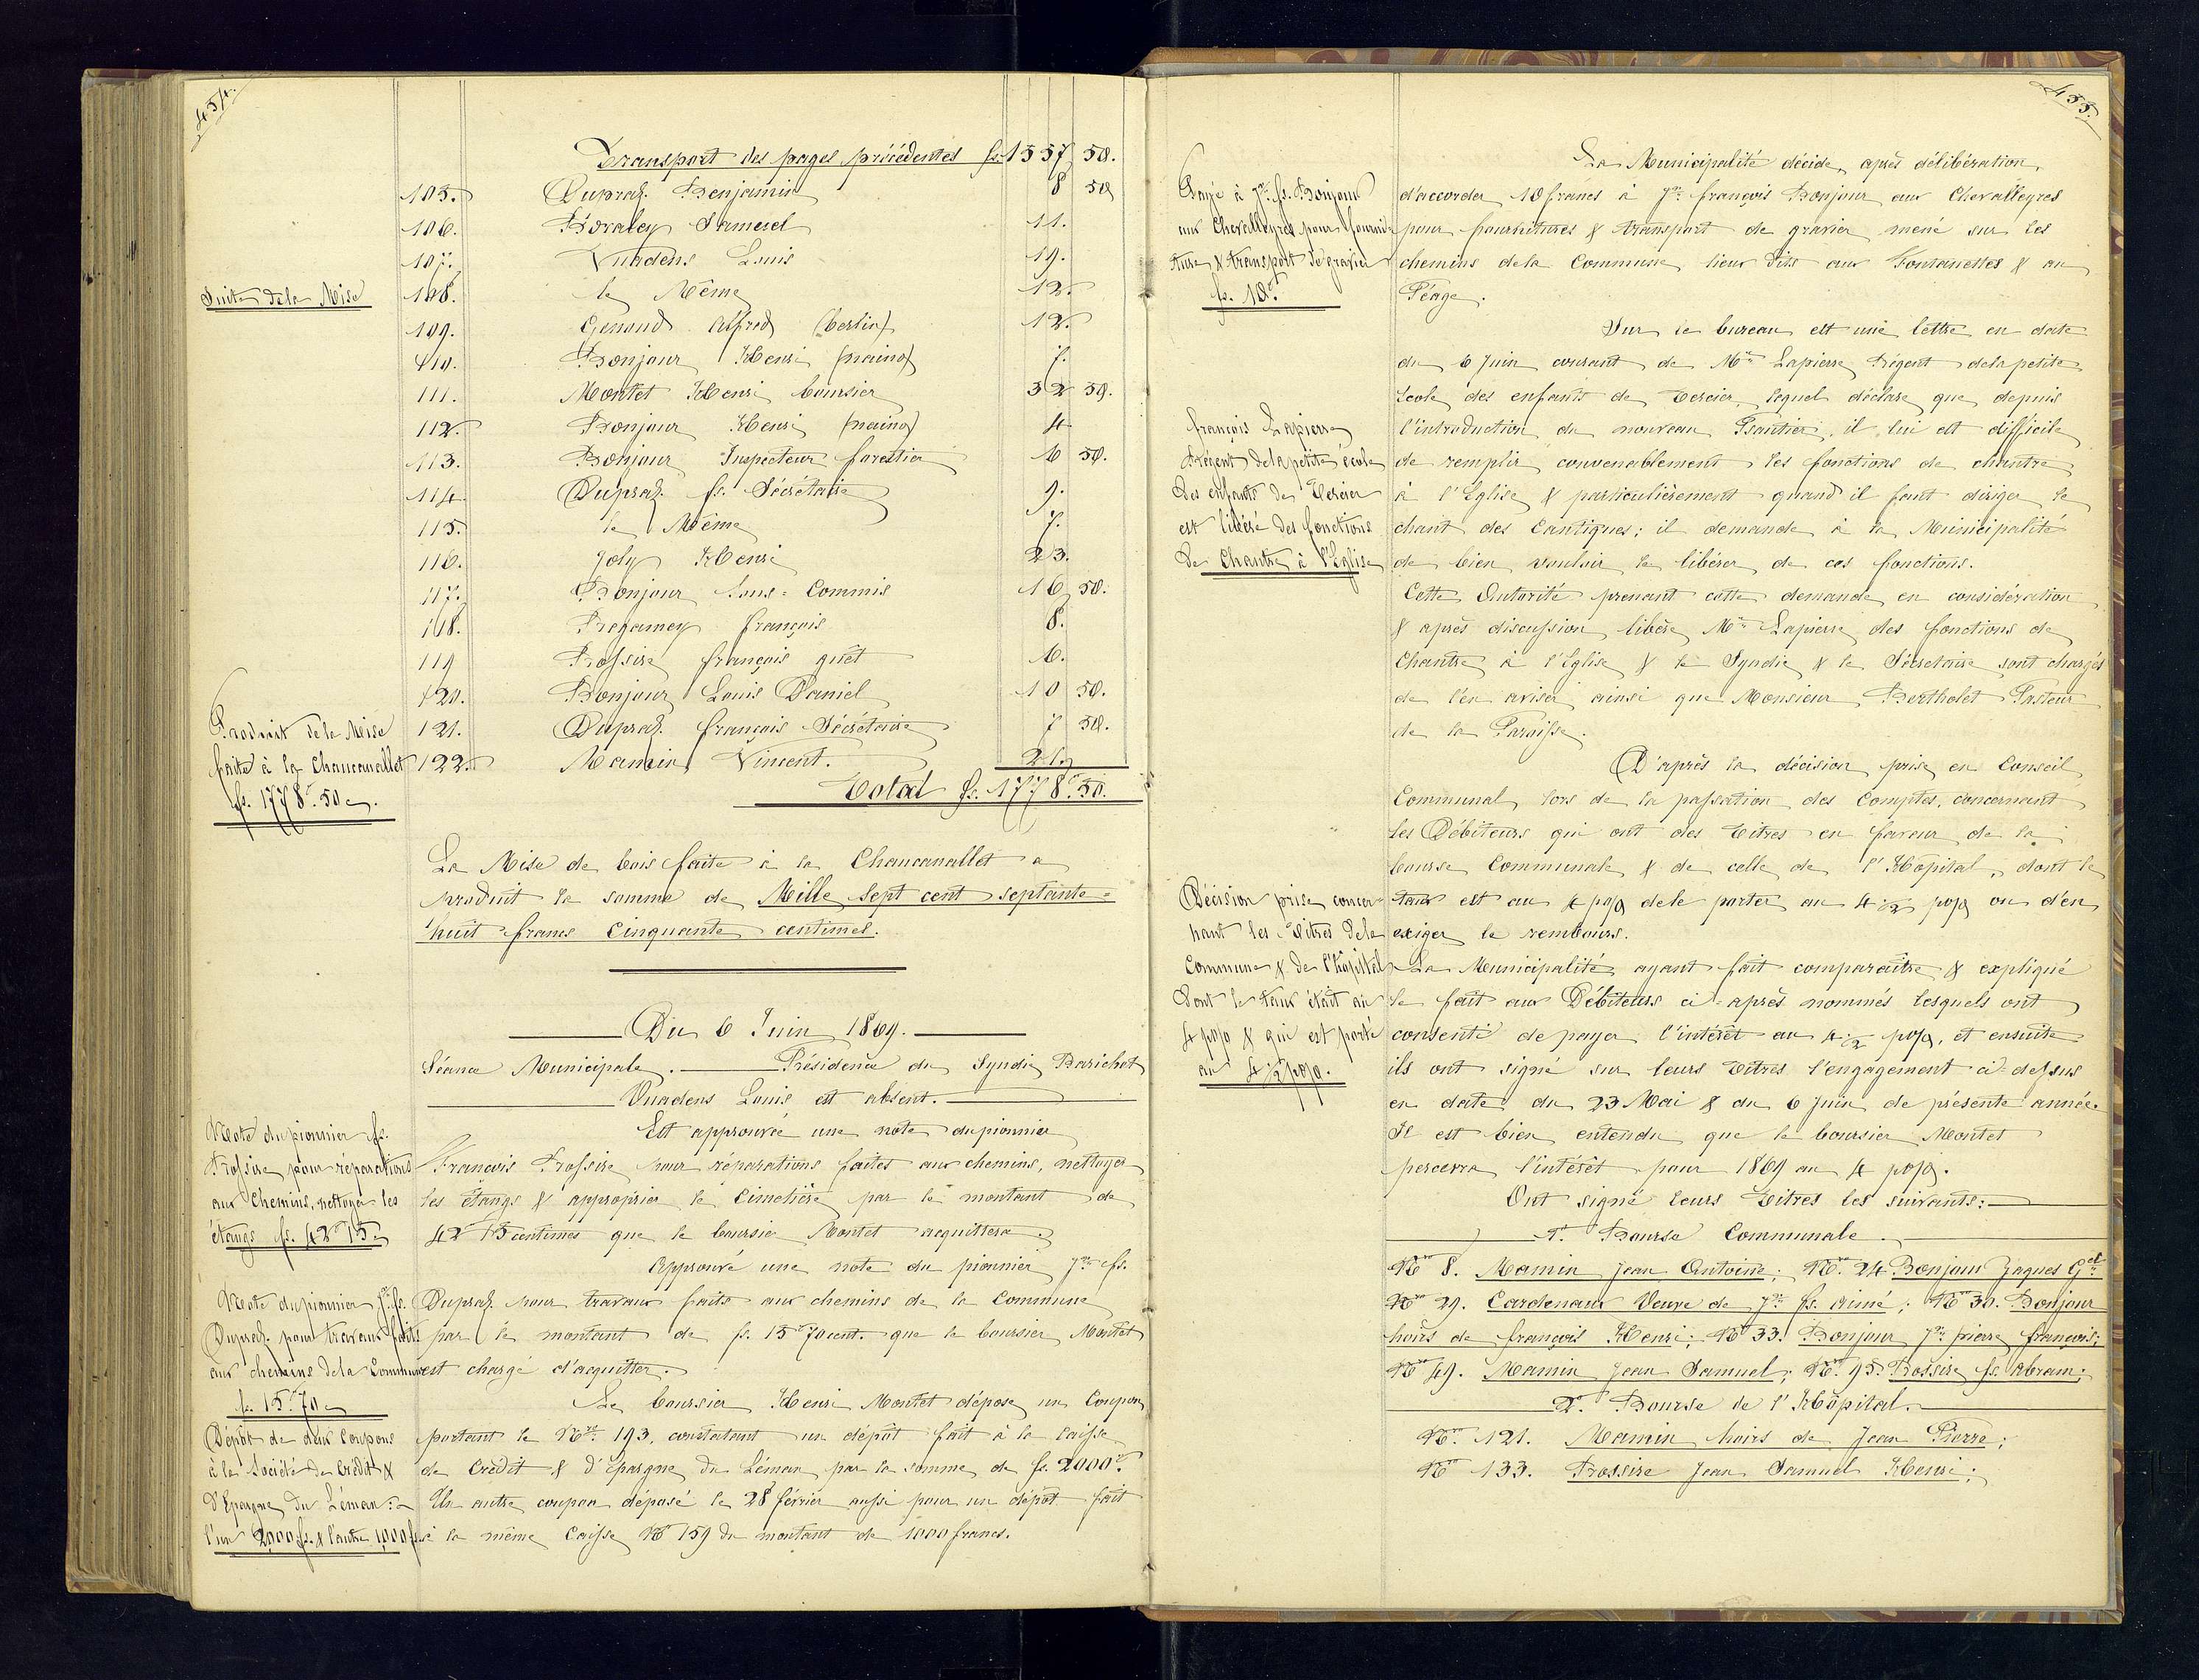 454.
Transport des pages précédentes fs. 1557 50.
105. Dupraz. Benjamin 8 50
106. Boraley Samuel 11.
107. Vuadens Louis 19.
Suite de la Mise
108. le Même 12.
109. Genand Alfred (berlin) 12.
110. Bonjour Henri (naino) 7.
111. Montet Henri boursier 32 50.
112. Bonjour Henri (naino) 4
113. Bonjour Inspecteur forestier 6 50.
114. Dupraz. fs. Sécrétaire 9.
115. le Même 7.
116. Joly Henri 23.
117. Bonjour Sous-Commis 16 50.
118. Pregamey françois 8.
119 Prossire françois guet 6.
120. Bonjour Louis Daniel 10 50.
121. Dupraz. françois Sécrétaire 7 50.
122. Mamin Vincent. 21.
Total fs. 1778. 50.
Produit de la Mise
faite à la Chaucanallet
fs. 1778.50 c.
La Mise de bois faite à la Chaucanallet a
produit la somme de Mille sept cent septante-
huit francs Cinquante centimes.
Du 6 Juin 1869.
Séance Municipale. Présidence du Syndic Barichet
Vuadens Louis est absent.
Est approuvée une note du pionnier
François Prossire pour réparations faites aux chemins, nettoyer
les étangs & approprier le Cimetière par le montant de
42 15 centimes que le boursier Montet acquittera.
Approuvé une note du pionnier Jn. fs.
Dupraz. pour travaux faits aux chemins de la Commune
par le montant de fs. 15 70 cent. que le boursier Montet
est chargé d'acquitter.
Le boursier Henri Montet dépose un Coupon
portant le No. 193. constatant un dépôt fait à la Caisse
de Crédit & d'Epargne du Léman par la somme de fs. 2000.
Un autre coupon déposé le 28 février aussi pour un dépôt fait
à la même Caisse No 159 du montant de 1000 francs.
Note du pionnier fs.
Prossire pour réparations
aux Chemins, nettoyer les
étangs fs. 42.15.
Note du pionnier Jn. fs.
Dupraz. pour travaux faits
aux chemins de la Commune
fs. 15.70 c
Dépôt de deux Coupons
à la Société de Crédit &
d'Epargne du Léman:
l'un 2,000 fs. & l'autre 1,000 fs.
455.
La Municipalité décide, après délibération,
d'accorder 10 francs à Jn. françois Bonjour aux Chevalleyres
pour fournitures & transport de gravier mené sur les
chemins de la Commune lieux dits aux Fontanettes & au
Péage.
Payé à Jn. fs. Bonjour
aux Chevalleyres pour fourni-
ture & transport de gravier
fs. 10.
Sur le bureau est une lettre en date
du 6 Juin courant de Mr. Lapierre Régent de la petite
école des enfants de Tercier, lequel déclare que depuis
l'introduction du nouveau Psautier, il lui est difficile
de remplir convenablement les fonctions de chantre
à l'Eglise & particulièrement quand il faut diriger le
chant des Cantiques; il demande à la Municipalité
de bien vouloir le libérer de ces fonctions.
Cette Autorité prenant cette demande en considération
& après discussion, libère Mr. Lapierre des fonctions de
Chantre à l'Eglise & le Syndic & le Sécretaire sont chargés
de l'en aviser ainsi que Monsieur Bertholet Pasteur
de la Paroisse.
françois Lapierre
Régent de la petite école
des enfants de Tercier
est libéré des fonctions
de Chantre à l'Eglise
D'après la décision prise en Conseil
Communal, lors de la passation des Comptes, concernant
les Débiteurs qui ont des titres en faveur de la
bourse Communale & de celle de l'Hôpital, dont le
taux est au 4 po/o de le porter au 4 1/2 po/o ou d'en
exiger le rembours.
La Municipalité ayant fait comparaître & expliqué
le fait aux Débiteurs ci-après nommés lesquels ont
consenti de payer l'intérêt au 4 1/2 po/o, et ensuite
ils ont signé sur leurs titres l'engagement ci-dessus
en date du 23 Mai & du 6 Juin de présente année.
Il est bien entendu que le boursier Montet
percevra l'intérêt pour 1869 au 4 po/o.
Ont signé leurs titres les suivants:
Décision prise concer-
nant les titres de la
Commune & de l'hôpital
dont le taux était au
4 po/o & qui est porté
au 4 1/2 po/o.
1o. Bourse Communale.
No 8. Mamin Jean Antoine; No. 24 Bonjour Jaques Gel
No 29. Cardenaux Veuve de Jn. fs. Aimé; No 30. Bonjour
hoirs de françois Henri; No 33. Bonjour Jn. pierre françois;
No 49. Mamin Jean Samuel; No. 95 Prossire fs. Abram;
2o. Bourse de l'Hôpital.
No. 121. Mamin hoirs de Jean Pierre;
No 133. Prossire Jean Samuel Henri;